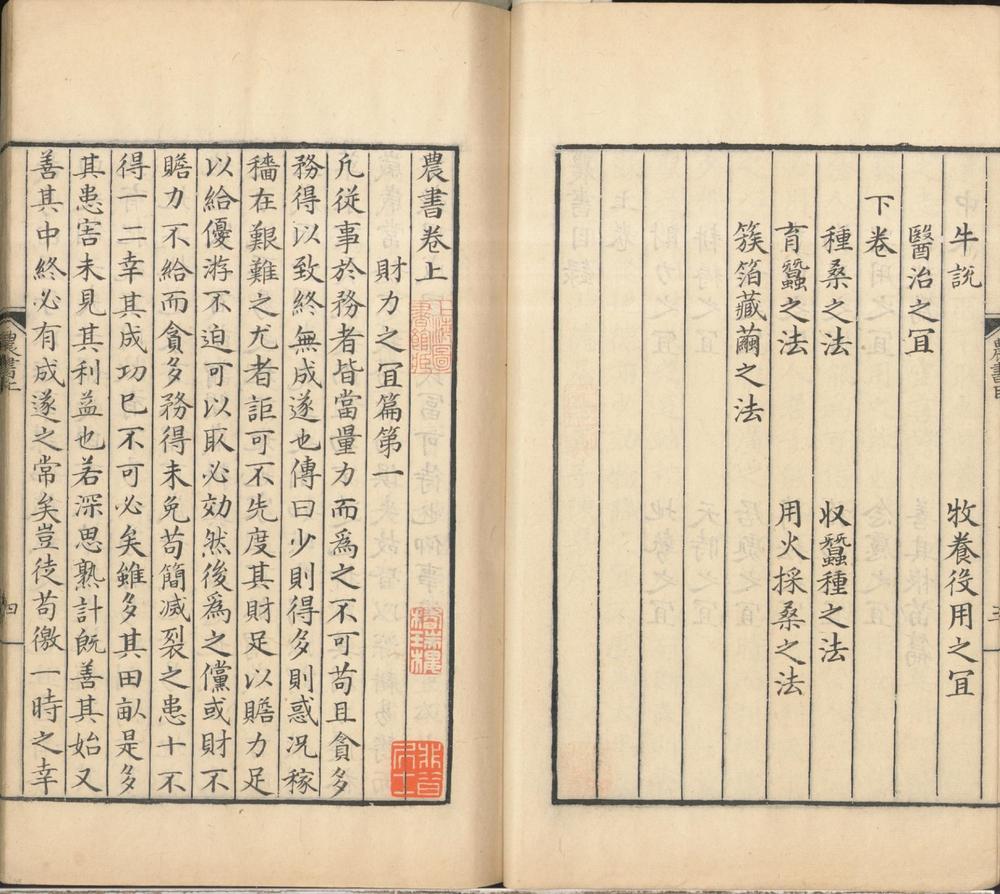 牛説　牧養役用之冝
醫治之冝
下卷
種桑之法　収蠶種之法
育蠶之法　用火採桑之法
簇箔藏繭之法
農書卷上
財力之冝篇第一
凡從事於務者皆當量力而爲之不可苟且貪多
務得以致終無成遂也傳曰少則得多則惑况稼
穡在艱難之尤者詎可不先度其財足以贍力足
以給優游不迫可以取必効然後爲之儻或財不
贍力不給而貪多務得未免苟簡滅裂之患十不
得一二幸其成功已不可必矣雖多其田畝是多
其患害未見其利益也若深思熟計旣善其始又
善其中終必有成遂之常矣豈徒苟徼一時之幸
上海圖
書館藏
農書上
四